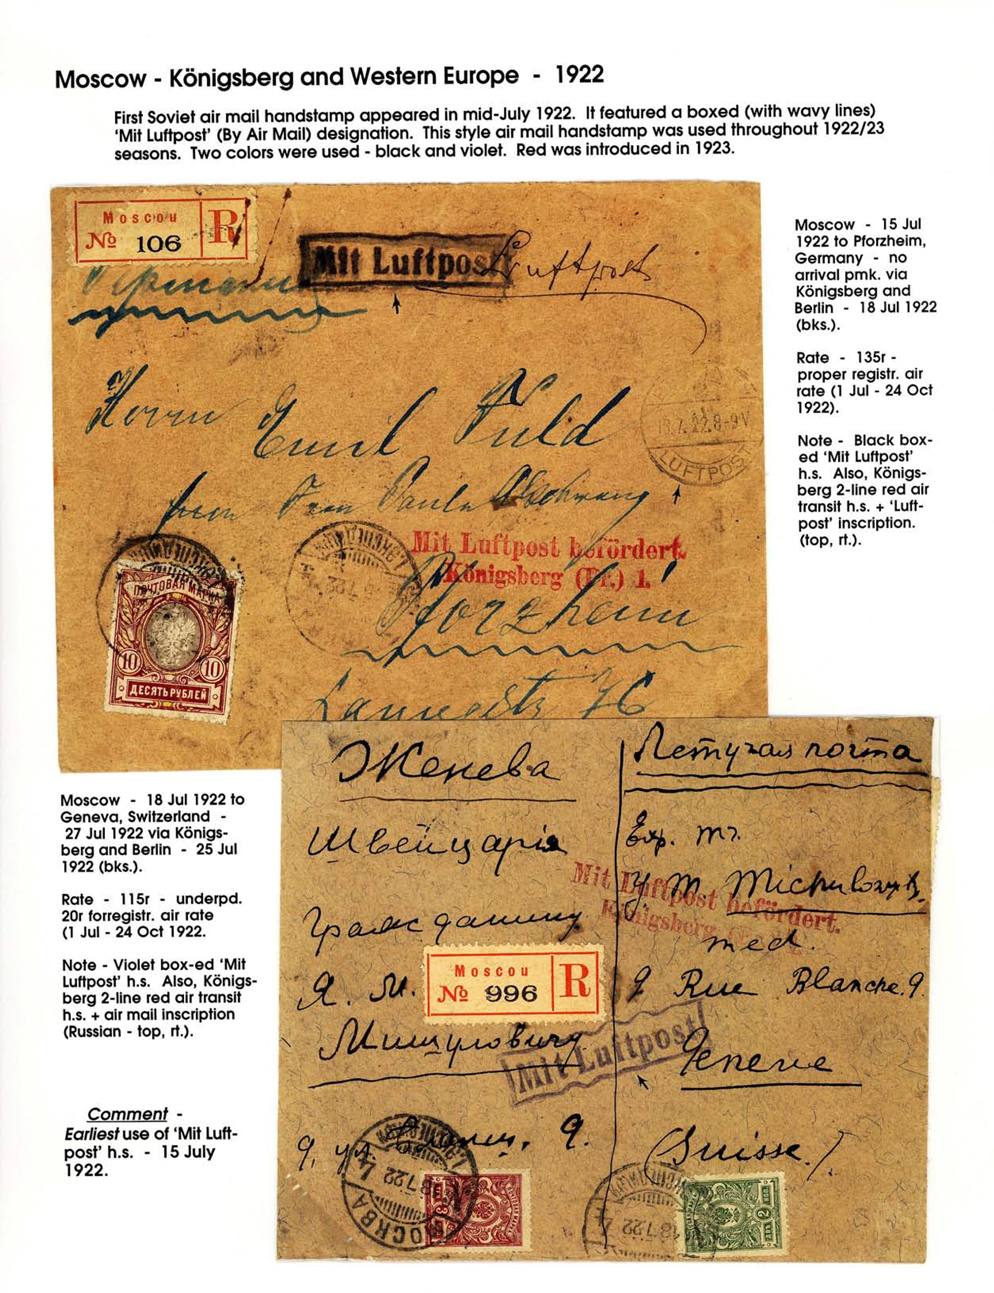 Moscow - Königsberg and Western Europe - 1922
First Soviet air mail handstamp appeared in mid-July 1922. It featured a boxed (with wavy lines)
'Mit Luftpost' (By Air Mail) designation. This style air mail handstamp was used throughout 1922/23
seasons. Two colors were used - black and violet. Red was introduced in 1923.
Moscou
№ 106
R
Mit Luftpost
Luftpost
Herrn Emil Fuld
18.7.22.8-9V
LUFTPOST
Mit Luftpost befördert.
Königsberg (Pr.) 1.
Pforzheim
76
ПОЧТОВАЯ МАРКА
10 10
ДЕСЯТЬ РУБЛЕЙ
Moscow - 15 Jul
1922 to Pforzheim,
Germany - no
arrival pmk. via
Königsberg and
Berlin - 18 Jul 1922
(bks.).
Rate - 135r -
proper registr. air
rate (1 Jul - 24 Oct
1922).
Note - Black box-
ed 'Mit Luftpost'
h.s. Also, Königs-
berg 2-line red air
transit h.s. + 'Luft-
post' inscription.
(top, rt.).
Moscow - 18 Jul 1922 to
Geneva, Switzerland -
27 Jul 1922 via Königs-
berg and Berlin - 25 Jul
1922 (bks.).
Rate - 115r - underpd.
20r forregistr. air rate
(1 Jul - 24 Oct 1922.
Note - Violet box-ed 'Mit
Luftpost' h.s. Also, Königs-
berg 2-line red air transit
h.s. + air mail inscription
(Russian - top, rt.).
Comment -
Earliest use of 'Mit Luft-
post' h.s. - 15 July
1922.
Женева
Швейцарія
Гражданину
Я. М.
Moscou
№ 996
R
Мицуловичу
9, ул.
9.
Летучая почта
Exp. mr.
Mit Luftpost befördert.
Königsberg
med.
9 Rue Blanche. 9.
Mit Luftpost
Geneve
Suisse!
МОСКВА
18 7 22
3
18 7 22
2